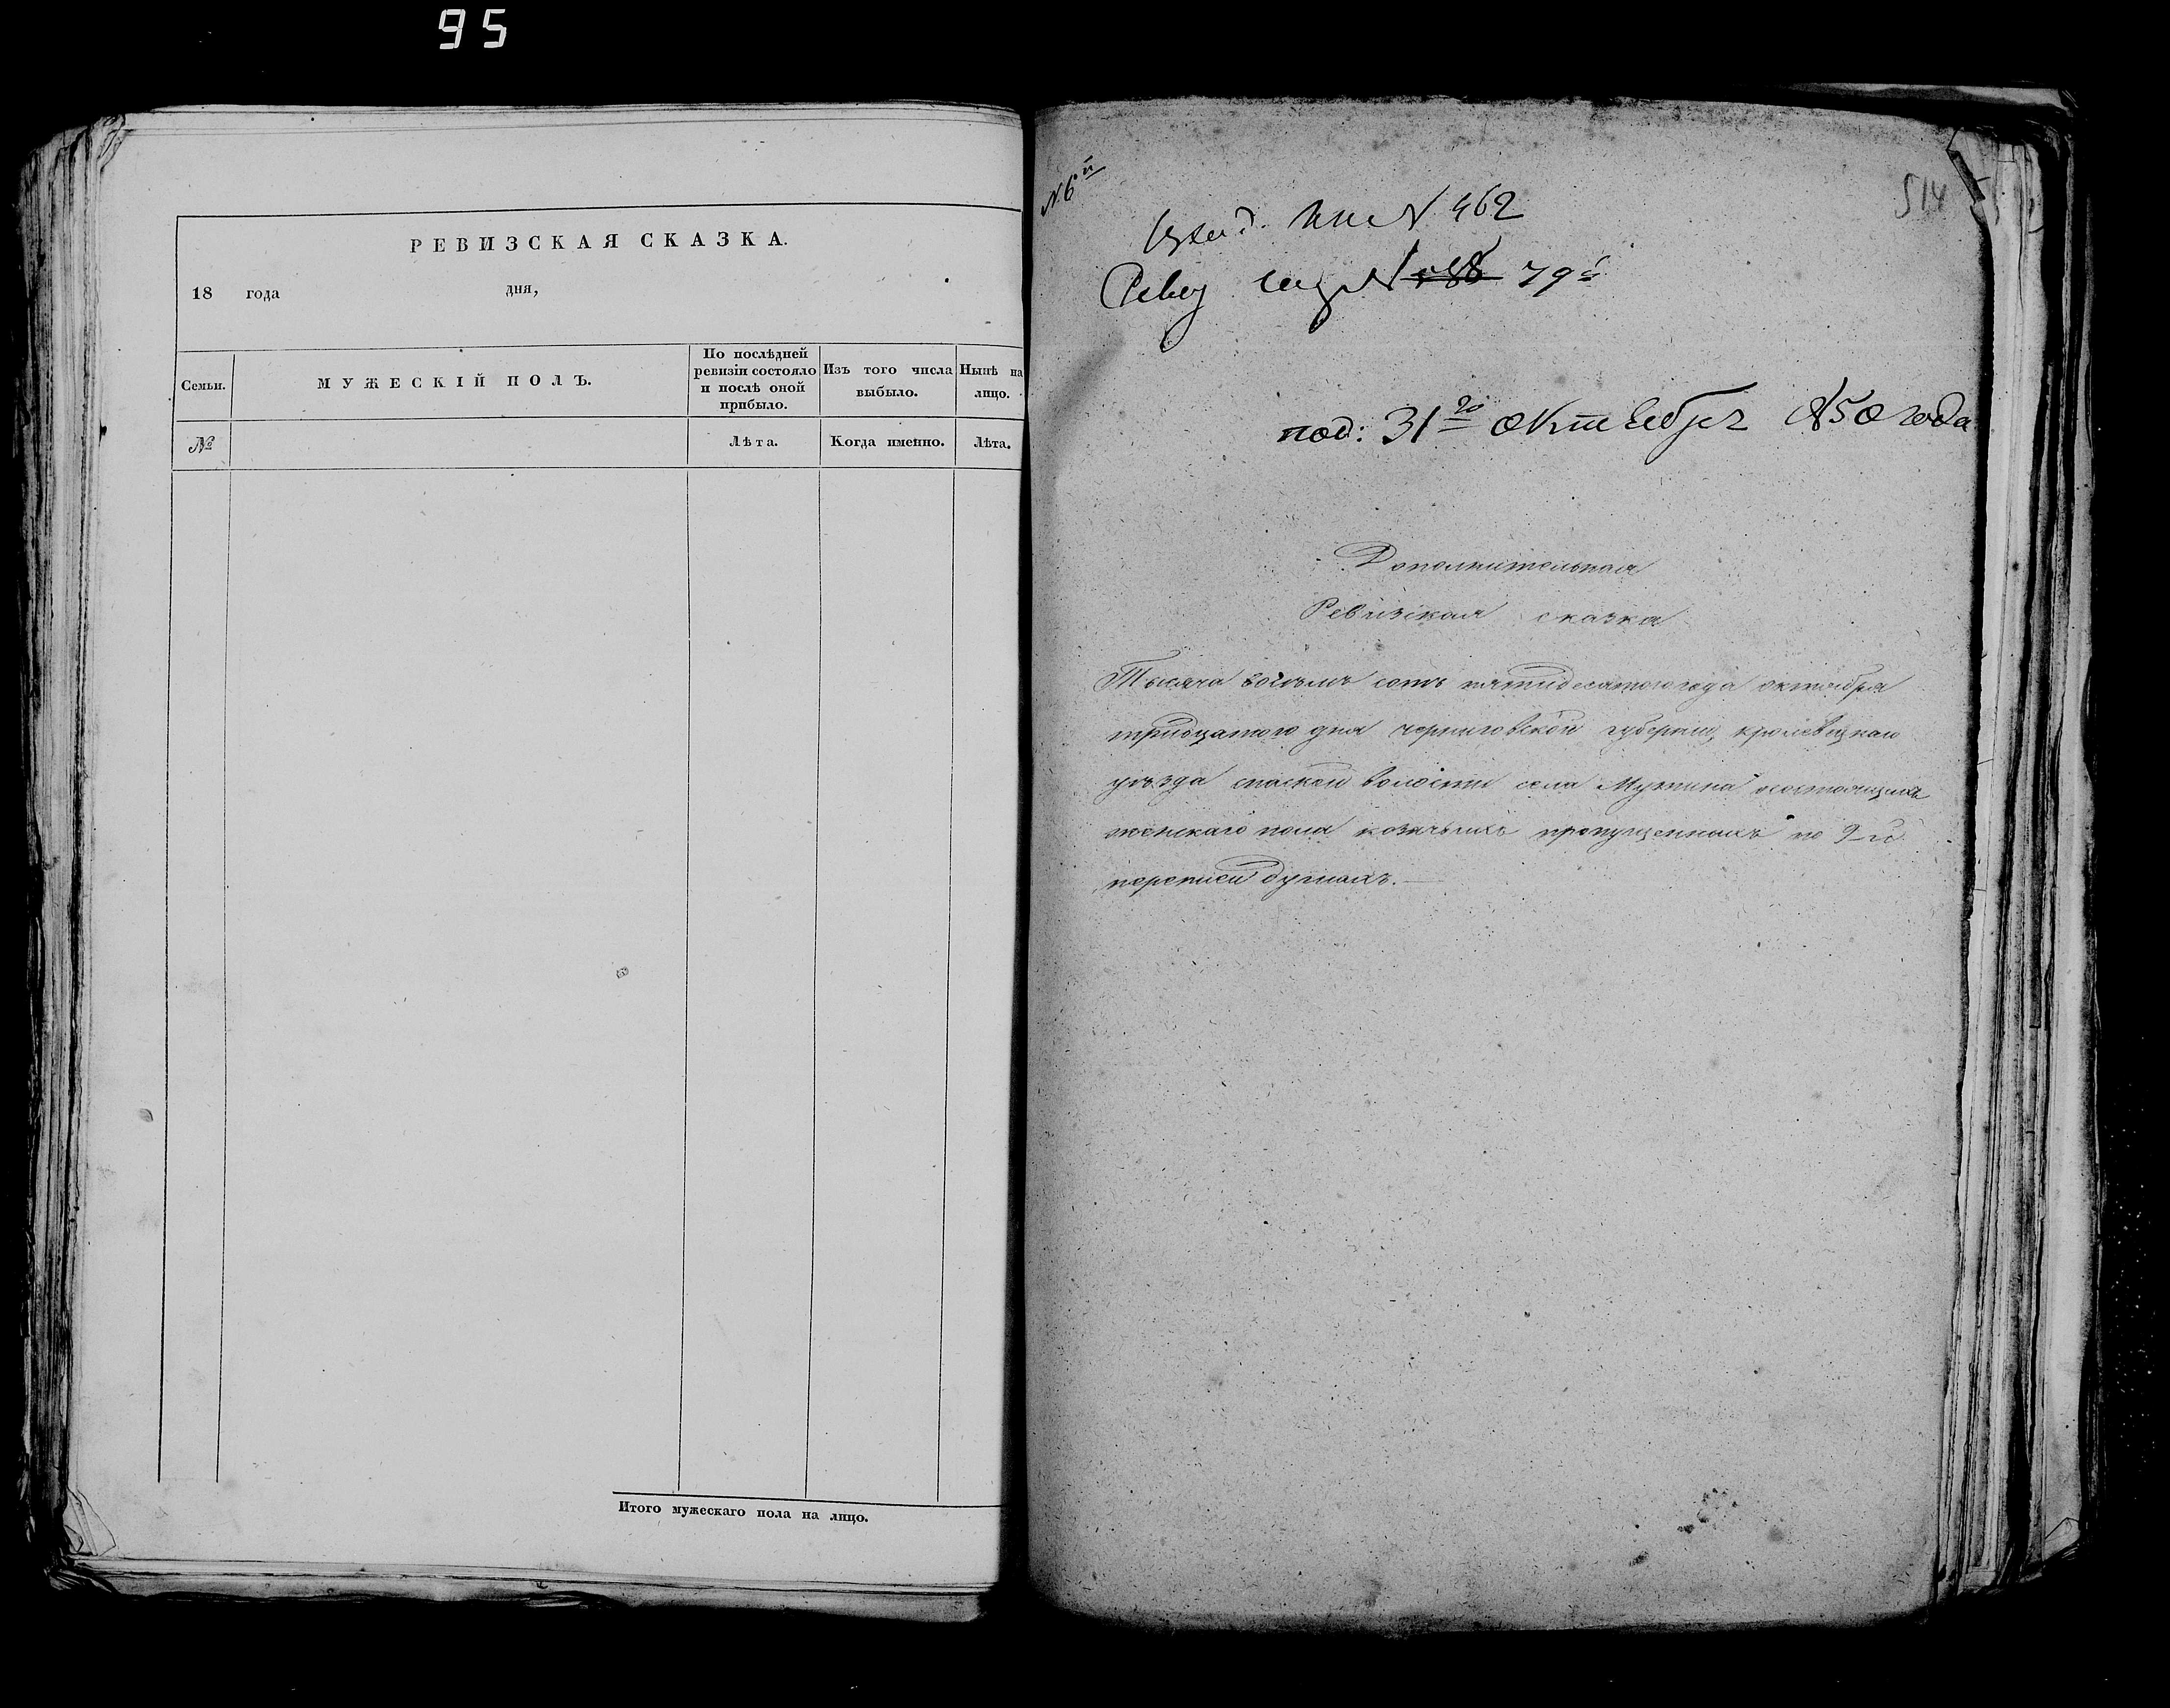 95
РЕВИЗСКАЯ СКАЗКА.
18 года дня,
Семьи.
МУЖЕСКІЙ ПОЛЪ.
По послѣдней ревизіи состояло и послѣ оной прибыло.
Изъ того числа выбыло.
Нынѣ на лицо.
№
Лѣта.
Когда именно.
Лѣта.
Итого мужескаго пола на лицо.
N. 6й
514
N 462
Ревиз N 79й
под: 31го Октября 850 года
Дополнительная
Ревизская сказка
Тысяча восемь сотъ пятидесятого года октября
тридцатого дня черниговской губернии, кролевецкаго
уѣзда спаской волости села Мутина о состоящихъ
женскаго пола козачьихъ пропущенныхъ по 9-й
переписи душахъ.—